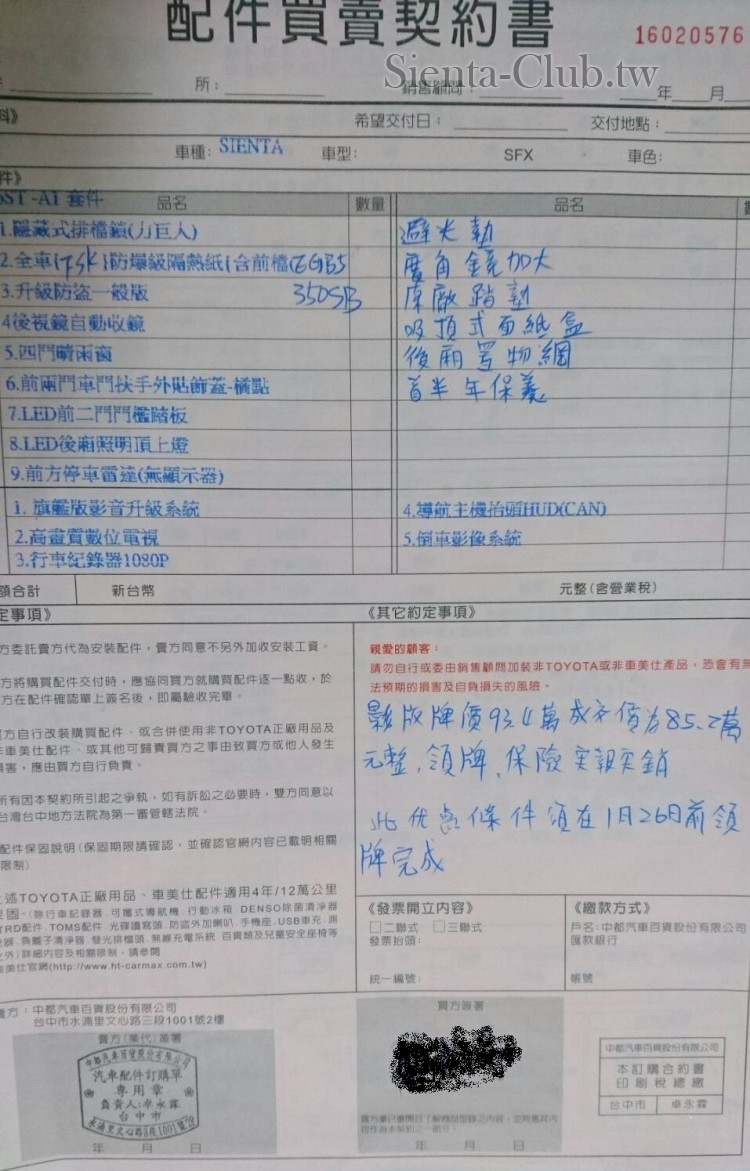 配件買賣契約書
16020576
Sienta-Club.tw
所：
銷售顧問：
年 月
希望交付日：
交付地點：
車種：SIENTA
車型：
SFX
車色：
件》
ST-A1 套件
品名 數量 品名
1.隱藏式排檔鎖(力巨人)
避光墊
2.全車(FSK)防爆級隔熱紙(含前檔
廣角鏡加大
3.升級防盜一般版 350SB
原廠踏墊
4後視鏡自動收鏡
吸頂式面紙盒
5.四門晴雨窗
後廂置物網
6.前兩門車門扶手外貼飾蓋-橫點
首半年保養
7.LED前二門門檻踏板
8.LED後廂照明頂上燈
9.前方停車雷達(無顯示器)
1. 旗艦版影音升級系統
4.導航主機抬頭HUD(CAN)
2.高畫質數位電視
5.倒車影像系統
3.行車紀錄器1080P
額合計 新台幣 元整(含營業稅)
定事項》
《其它約定事項》
方委託賣方代為安裝配件，賣方同意不另外加收安裝工資。
方將購買配件交付時，應協同買方就購買配件逐一點收，於
方在配件確認單上簽名後，即屬驗收完畢。
方自行改裝購買配件、或合併使用非TOYOTA正廠用品及
車美仕配件、或其他可歸責買方之事由致買方或他人發生
損害，應由買方自行負責。
所有因本契約所引起之爭執，如有訴訟之必要時，雙方同意以
台灣台中地方法院為第一審管轄法院。
配件保固說明(保固期限請確認，並確認官網內容已載明相關
限制)
述TOYOTA正廠用品、車美仕配件適用4年/12萬公里
固。(除行車記錄器.可攜式導航機.行動冰箱.DENSO除菌清淨器
TRD配件.TOMS配件.光碟讀寫頭.防盜外加喇叭.手機座.USB車充.測
器.負離子清淨器.發光排檔頭.無線充電系統.百貨類及兒童安全座椅等
之外)詳細內容及相關限制，請參閱
美仕官網(http://www.ht-carmax.com.tw)
親愛的顧客：
請勿自行或委由銷售顧問加裝非TOYOTA或非車美仕產品，恐會有無
法預期的損害及自負損失的風險。
影版牌價93.4萬成交價為85.2萬
元整，領牌、保險實報實銷
此优惠條件須在1月26日前領
牌完成
《發票開立內容》
《繳款方式》
□二聯式 □三聯式
發票抬頭：
統一編號：
戶名：中都汽車百貨股份有限公司
匯款銀行
帳號
賣方：中都汽車百貨股份有限公司
台中市水湳里文心路三段1001號2樓
賣方(業代)簽署
買方簽署
中都汽車百貨股份有限公司
汽車配件訂購單
專用章
負責人：卓永霖
台中市
水湳里文心路三段1001號2樓
年 月 日
年 月 日
中都汽車百貨股份有限公司
本訂購合約書
印刷稅總繳
台中市 卓永霖